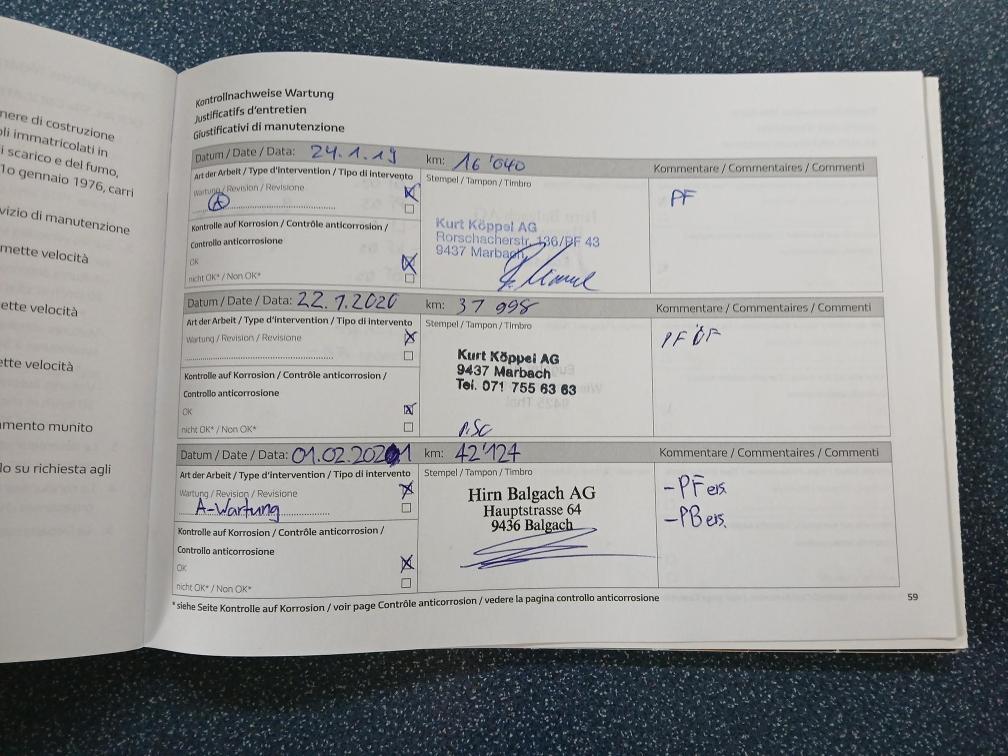 nere di costruzione
oli immatricolati in
i scarico e del fumo,
1o gennaio 1976, carri
vizio di manutenzione
mette velocità
ette velocità
ette velocità
amento munito
lo su richiesta agli
Kontrollnachweise Wartung
Justificatifs d'entretien
Giustificativi di manutenzione
Datum / Date / Data: 24.1.19 km: 16'040 Kommentare / Commentaires / Commenti
Art der Arbeit / Type d'intervention / Tipo di intervento Stempel / Tampon / Timbro
Wartung / Revision / Revisione PF
A
Kontrolle auf Korrosion / Contrôle anticorrosion /
Controllo anticorrosione
OK
nicht OK* / Non OK*
Kurt Köppel AG
Rorschacherstr. 136/PF 43
9437 Marbach
Datum / Date / Data: 22.1.2020 km: 37 998 Kommentare / Commentaires / Commenti
Art der Arbeit / Type d'intervention / Tipo di intervento Stempel / Tampon / Timbro
Wartung / Revision / Revisione PF ÖF
Kontrolle auf Korrosion / Contrôle anticorrosion /
Controllo anticorrosione
OK
nicht OK* / Non OK*
Kurt Köppel AG
9437 Marbach
Tel. 071 755 63 63
Datum / Date / Data: 01.02.2021 km: 42'124 Kommentare / Commentaires / Commenti
Art der Arbeit / Type d'intervention / Tipo di intervento Stempel / Tampon / Timbro
Wartung / Revision / Revisione
A-Wartung
Kontrolle auf Korrosion / Contrôle anticorrosion /
Controllo anticorrosione
OK
nicht OK* / Non OK*
Hirn Balgach AG
Hauptstrasse 64
9436 Balgach
-PF ers.
-PB ers.
* siehe Seite Kontrolle auf Korrosion / voir page Contrôle anticorrosion / vedere la pagina controllo anticorrosione
59